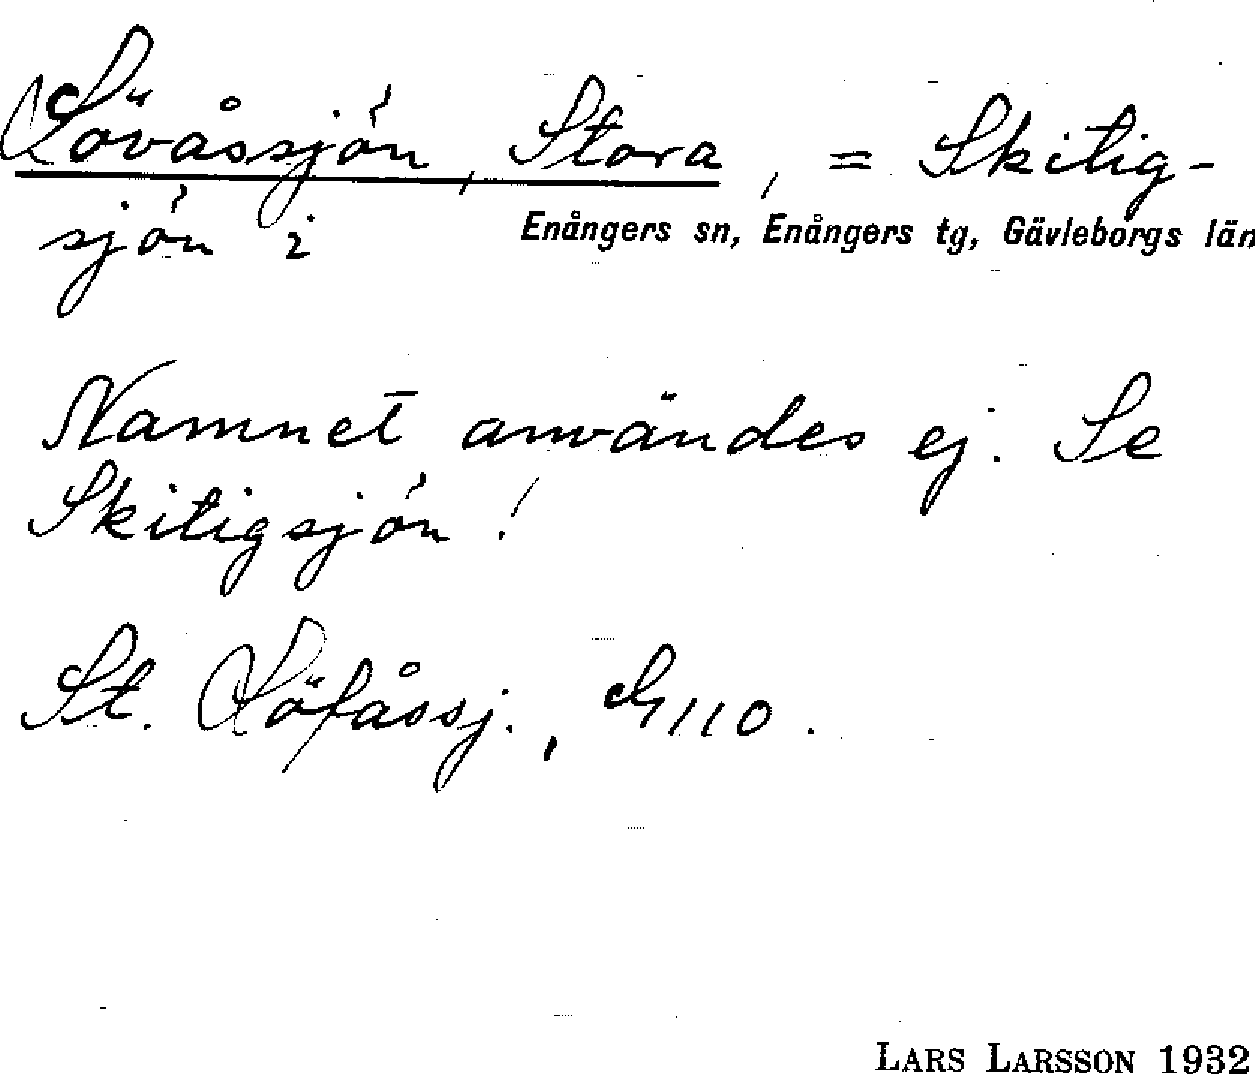 Lövåssjön, Stora, = Skitig-
sjön i
Enångers sn, Enångers tg, Gävleborgs län
Namnet användes ej. Se
Skitigsjön!
St. Löfåssj., G110.
LARS LARSSON 1932